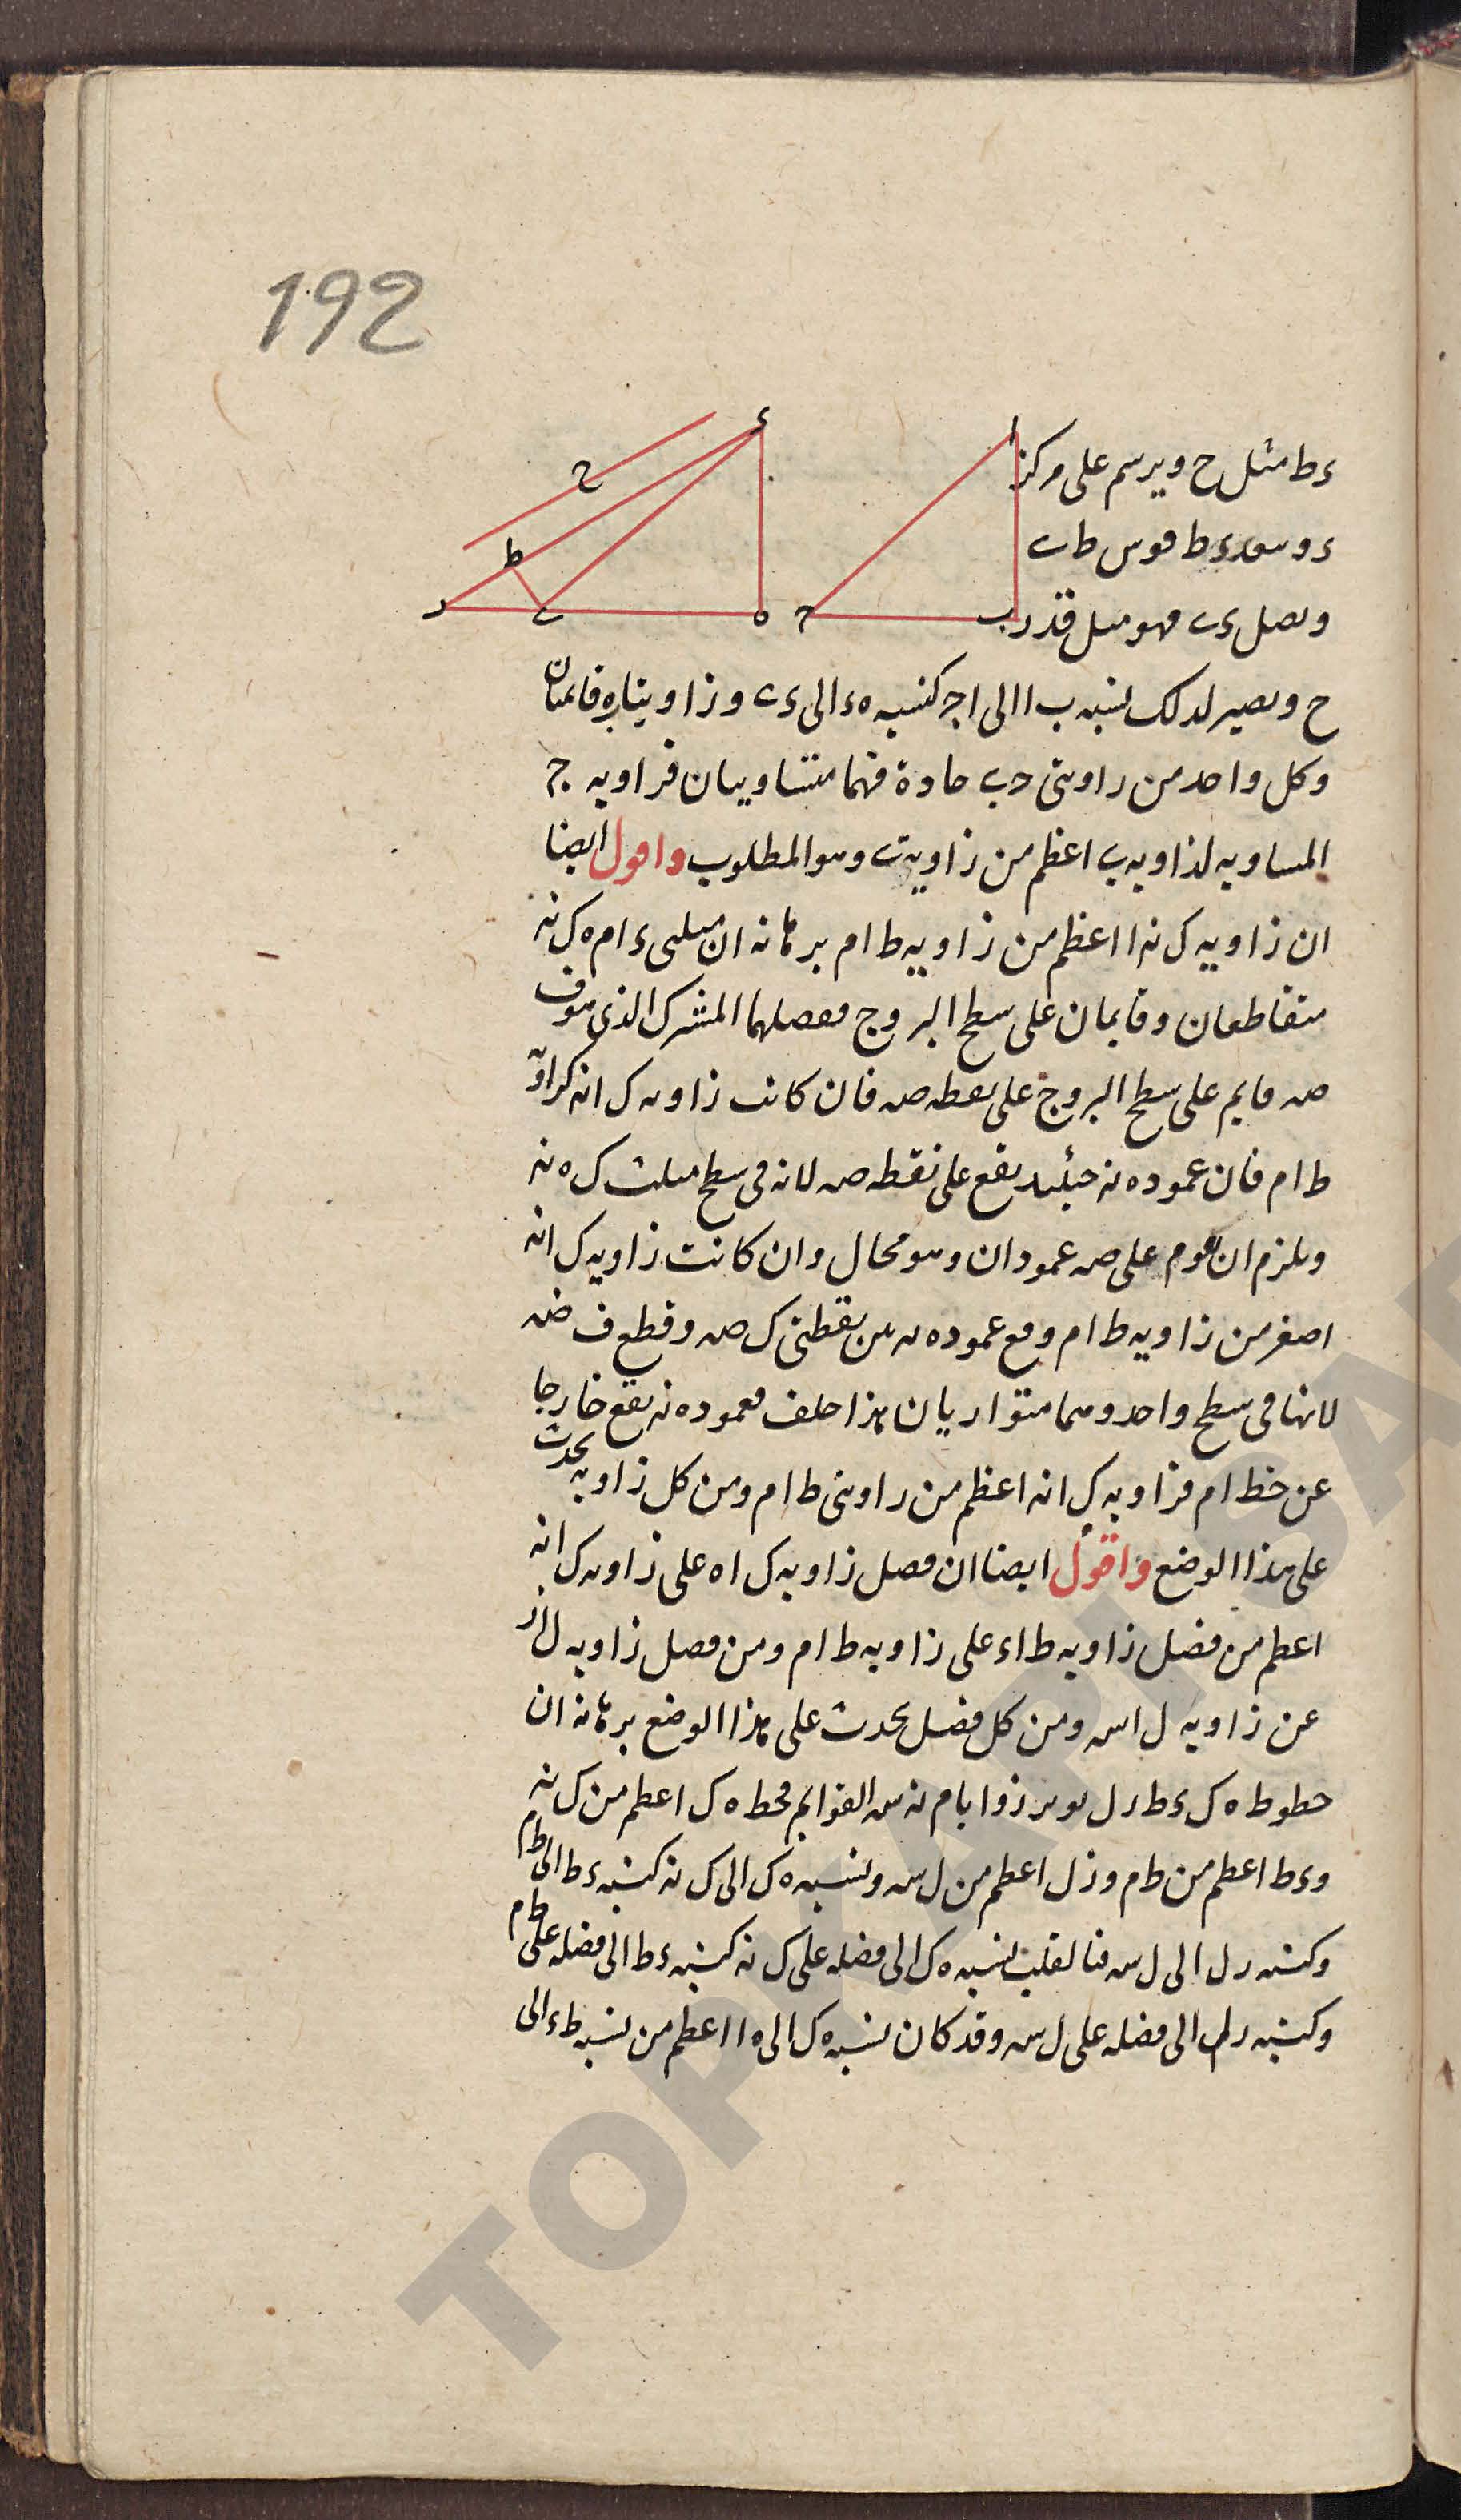 192
ا ء ح ط ر ى ه ج ب
ء ط مثل ح ويرسم على مركز
ء وببعد ء ط قوس ط ى
ونصل ء ى فهو مثل قدر
ح ويصير لذلك نسبه ب ا الى ا ج كنسبه ه ء الى ء ى وزاويتا ب ه قائمتان
وكل واحد من زاويتى ج ى حادة فهما متساويان فزاويه ج
المساويه لزاويه ى اعظم من زاوية ر وهو المطلوب واقول ايضا
ان زاويه ك ا نه اعظم من زاويه ط ا م برهانه ان مثلثى ء ا م ه ك نه
متقاطعان وقايمان على سطح البروج ففصلهما المشترك الذى هو ف
صه قايم على سطح البروج على نقطه صه فان كانت زاويه ك ا نه كزاويه
ط ا م فان عمود ه نه حينئذ يقع على نقطه صه لانه فى سطح مثلث ك ه نه
ويلزم ان يقوم على صه عمودان وهو محال وان كانت زاويه ك ا نه
اصغر من زاويه ط ا م وقع عمود ه نه بين نقطتى ك صه وقطع ف صه
لانها فى سطح واحد وهما متوازيان هذا خلف فعمود ه نه يقع خارجا
عن خط ا م فزاويه ك ا نه اعظم من زاويتى ط ا م ومن كل زاويه تحدث
على هذا الوضع واقول ايضا ان فصل زاويه ك ا ه على زاويه ك ا نه
اعظم من فضل زاويه ط ا ء على زاويه ط ا م ومن فصل زاويه ل ا ز
عن زاويه ل ا س ومن كل فضل يحدث على هذا الوضع برهانه ان
خطوط ه ك ء ط ر ل يوتر زوايا م نه سه القوايم فخط ه ك اعظم من ك نه
و ء ط اعظم من ط م و ز ل اعظم من ل سه ونسبه ه ك الى ك نه كنسبه ء ط الى ط م
وكنسبه ر ل الى ل سه فبالقلب نسبه ه ك الى فضله على ك نه كنسبه ء ط الى فضله على ط م
وكنسبه ر ل الى فضله على ل سه وقد كان نسبه ه ك الى ه ا اعظم من نسبه ط ء الى
TOPKAPI SA